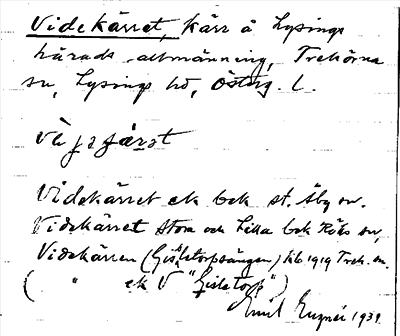 Videkärret, kärr å Lysings
härads allmänning, Trehörna
sn, Lysings hd, Österg. l.
Videkärret ek bek st. Åby sn.
Videkärret stora och lilla bek Röks sn,
Videkärren (Gisletorpsängen) 1919 Treh. sn.
( " ek V "Gisletorp")
Emil 1939.